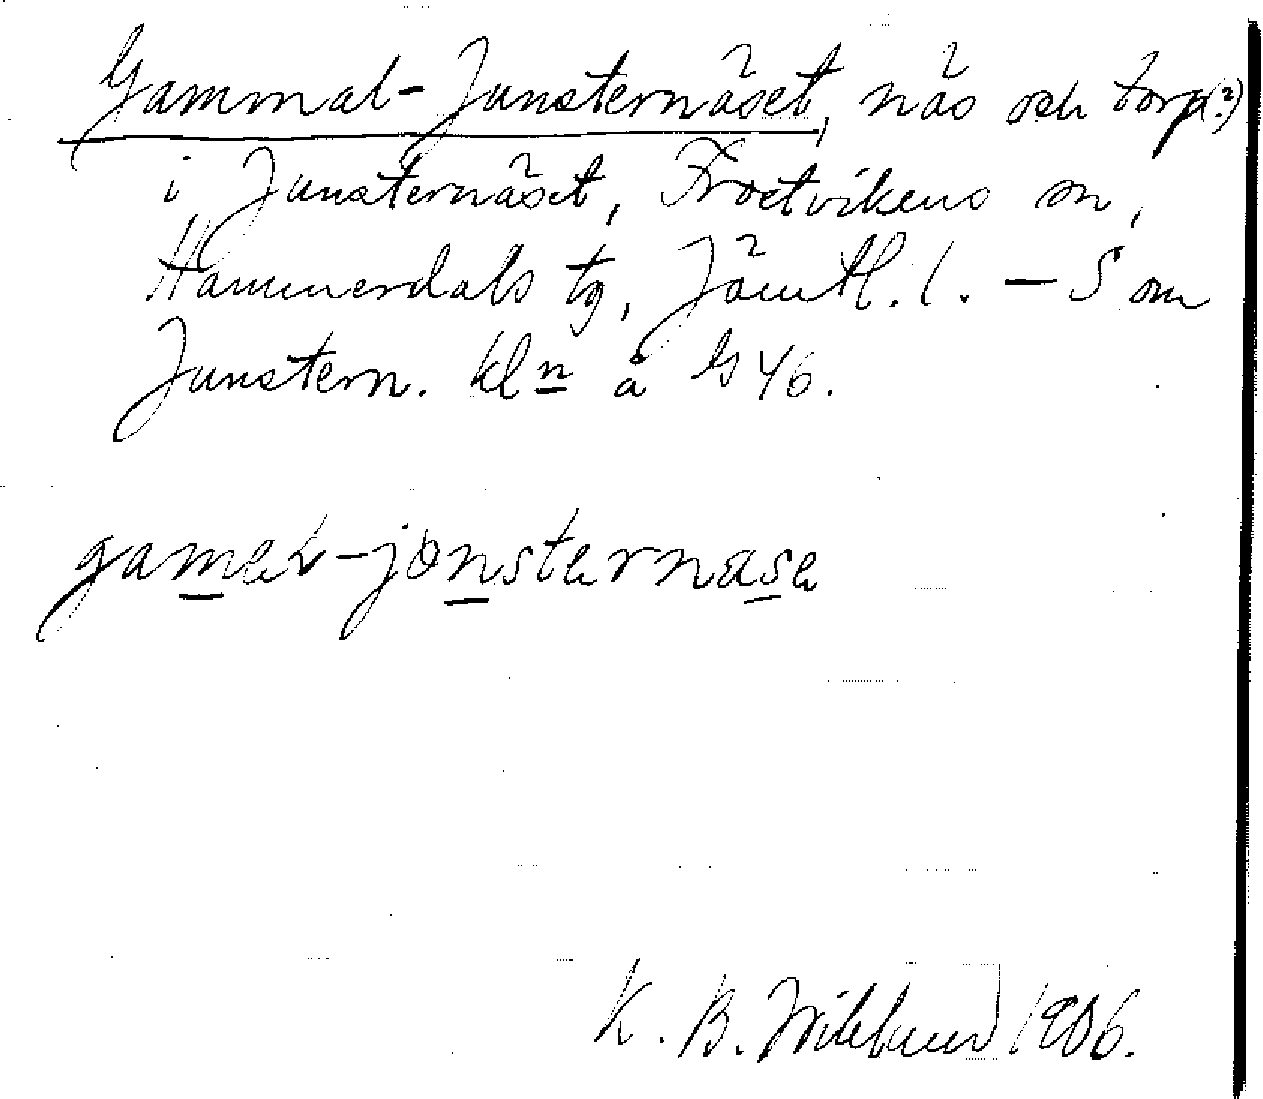 Gammal-Junsternäset, näs och torp(?)
i Junsternäset, Frostvikens sn,
Hammerdals tg, Jämtl. l. – S om
Junstern. kln å bl 46.
-jonsternase
K. B. Wiklund 1906.